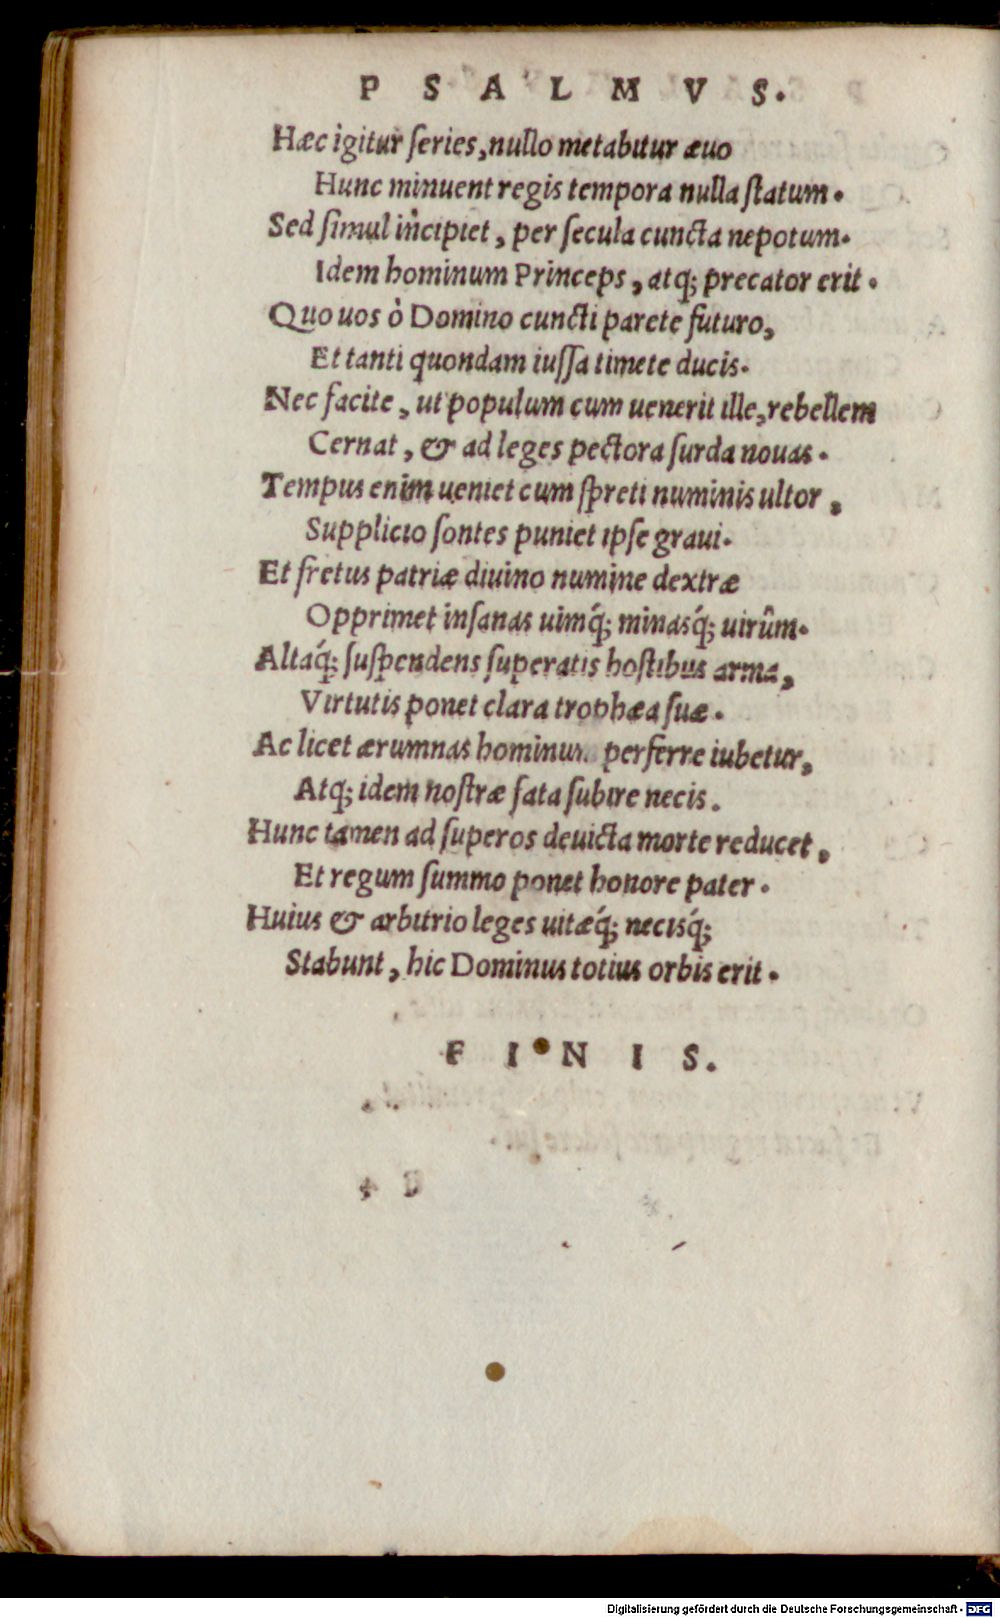 PSALMVS.
Hæc igitur ſeries, nullo metabitur æuo
Hunc minuent regis tempora nulla ſtatum.
Sed ſimul incipiet, per ſecula cuncta nepotum.
Idem hominum Princeps, atq; precator erit.
Quo uos ò Domino cuncti parete futuro,
Et tanti quondam iuſſa timete ducis.
Nec facite, ut populum cum uenerit ille, rebellem
Cernat, & ad leges pectora ſurda nouas.
Tempus enim ueniet cum ſpreti numinis ultor,
Supplicio ſontes puniet ipſe graui.
Et fretus patriæ diuino numine dextræ
Opprimet inſanas uimq́; minasq́; uirûm.
Altaq́; ſuſpendens ſuperatis hoſtibus arma,
Virtutis ponet clara trophæa ſuæ.
Ac licet ærumnas hominum perferre iubetur,
Atq; idem noſtræ fata ſubire necis.
Hunc tamen ad ſuperos deuicta morte reducet,
Et regum ſummo ponet honore pater.
Huius & arbitrio leges uitæq́; necisq́;
Stabunt, hic Dominus totius orbis erit.
FINIS.
Digitalisierung gefördert durch die Deutsche Forschungsgemeinschaft - DFG